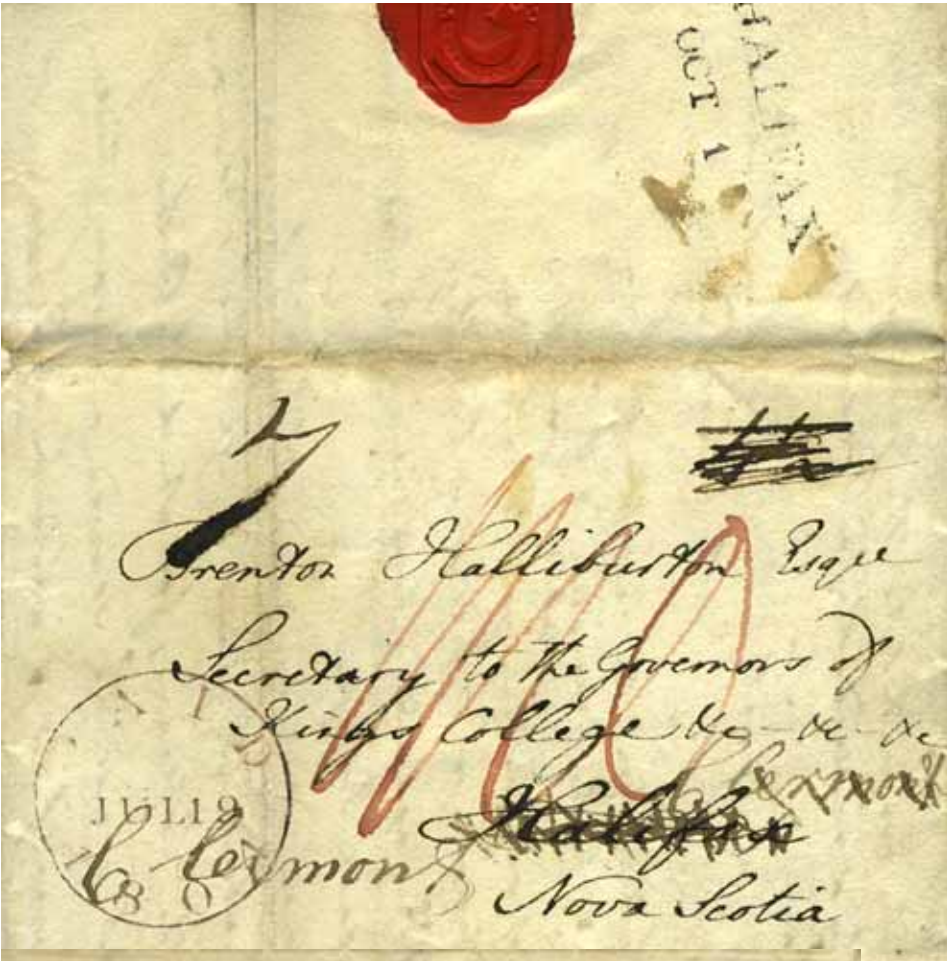 HALIFAX
OCT 1
7
Brenton Halliburton Esqre
Secretary to the Governors of
Kings College &c - &c - &c
Clermont
Halifax
Nova Scotia
PAID
JUL 19
Clermont